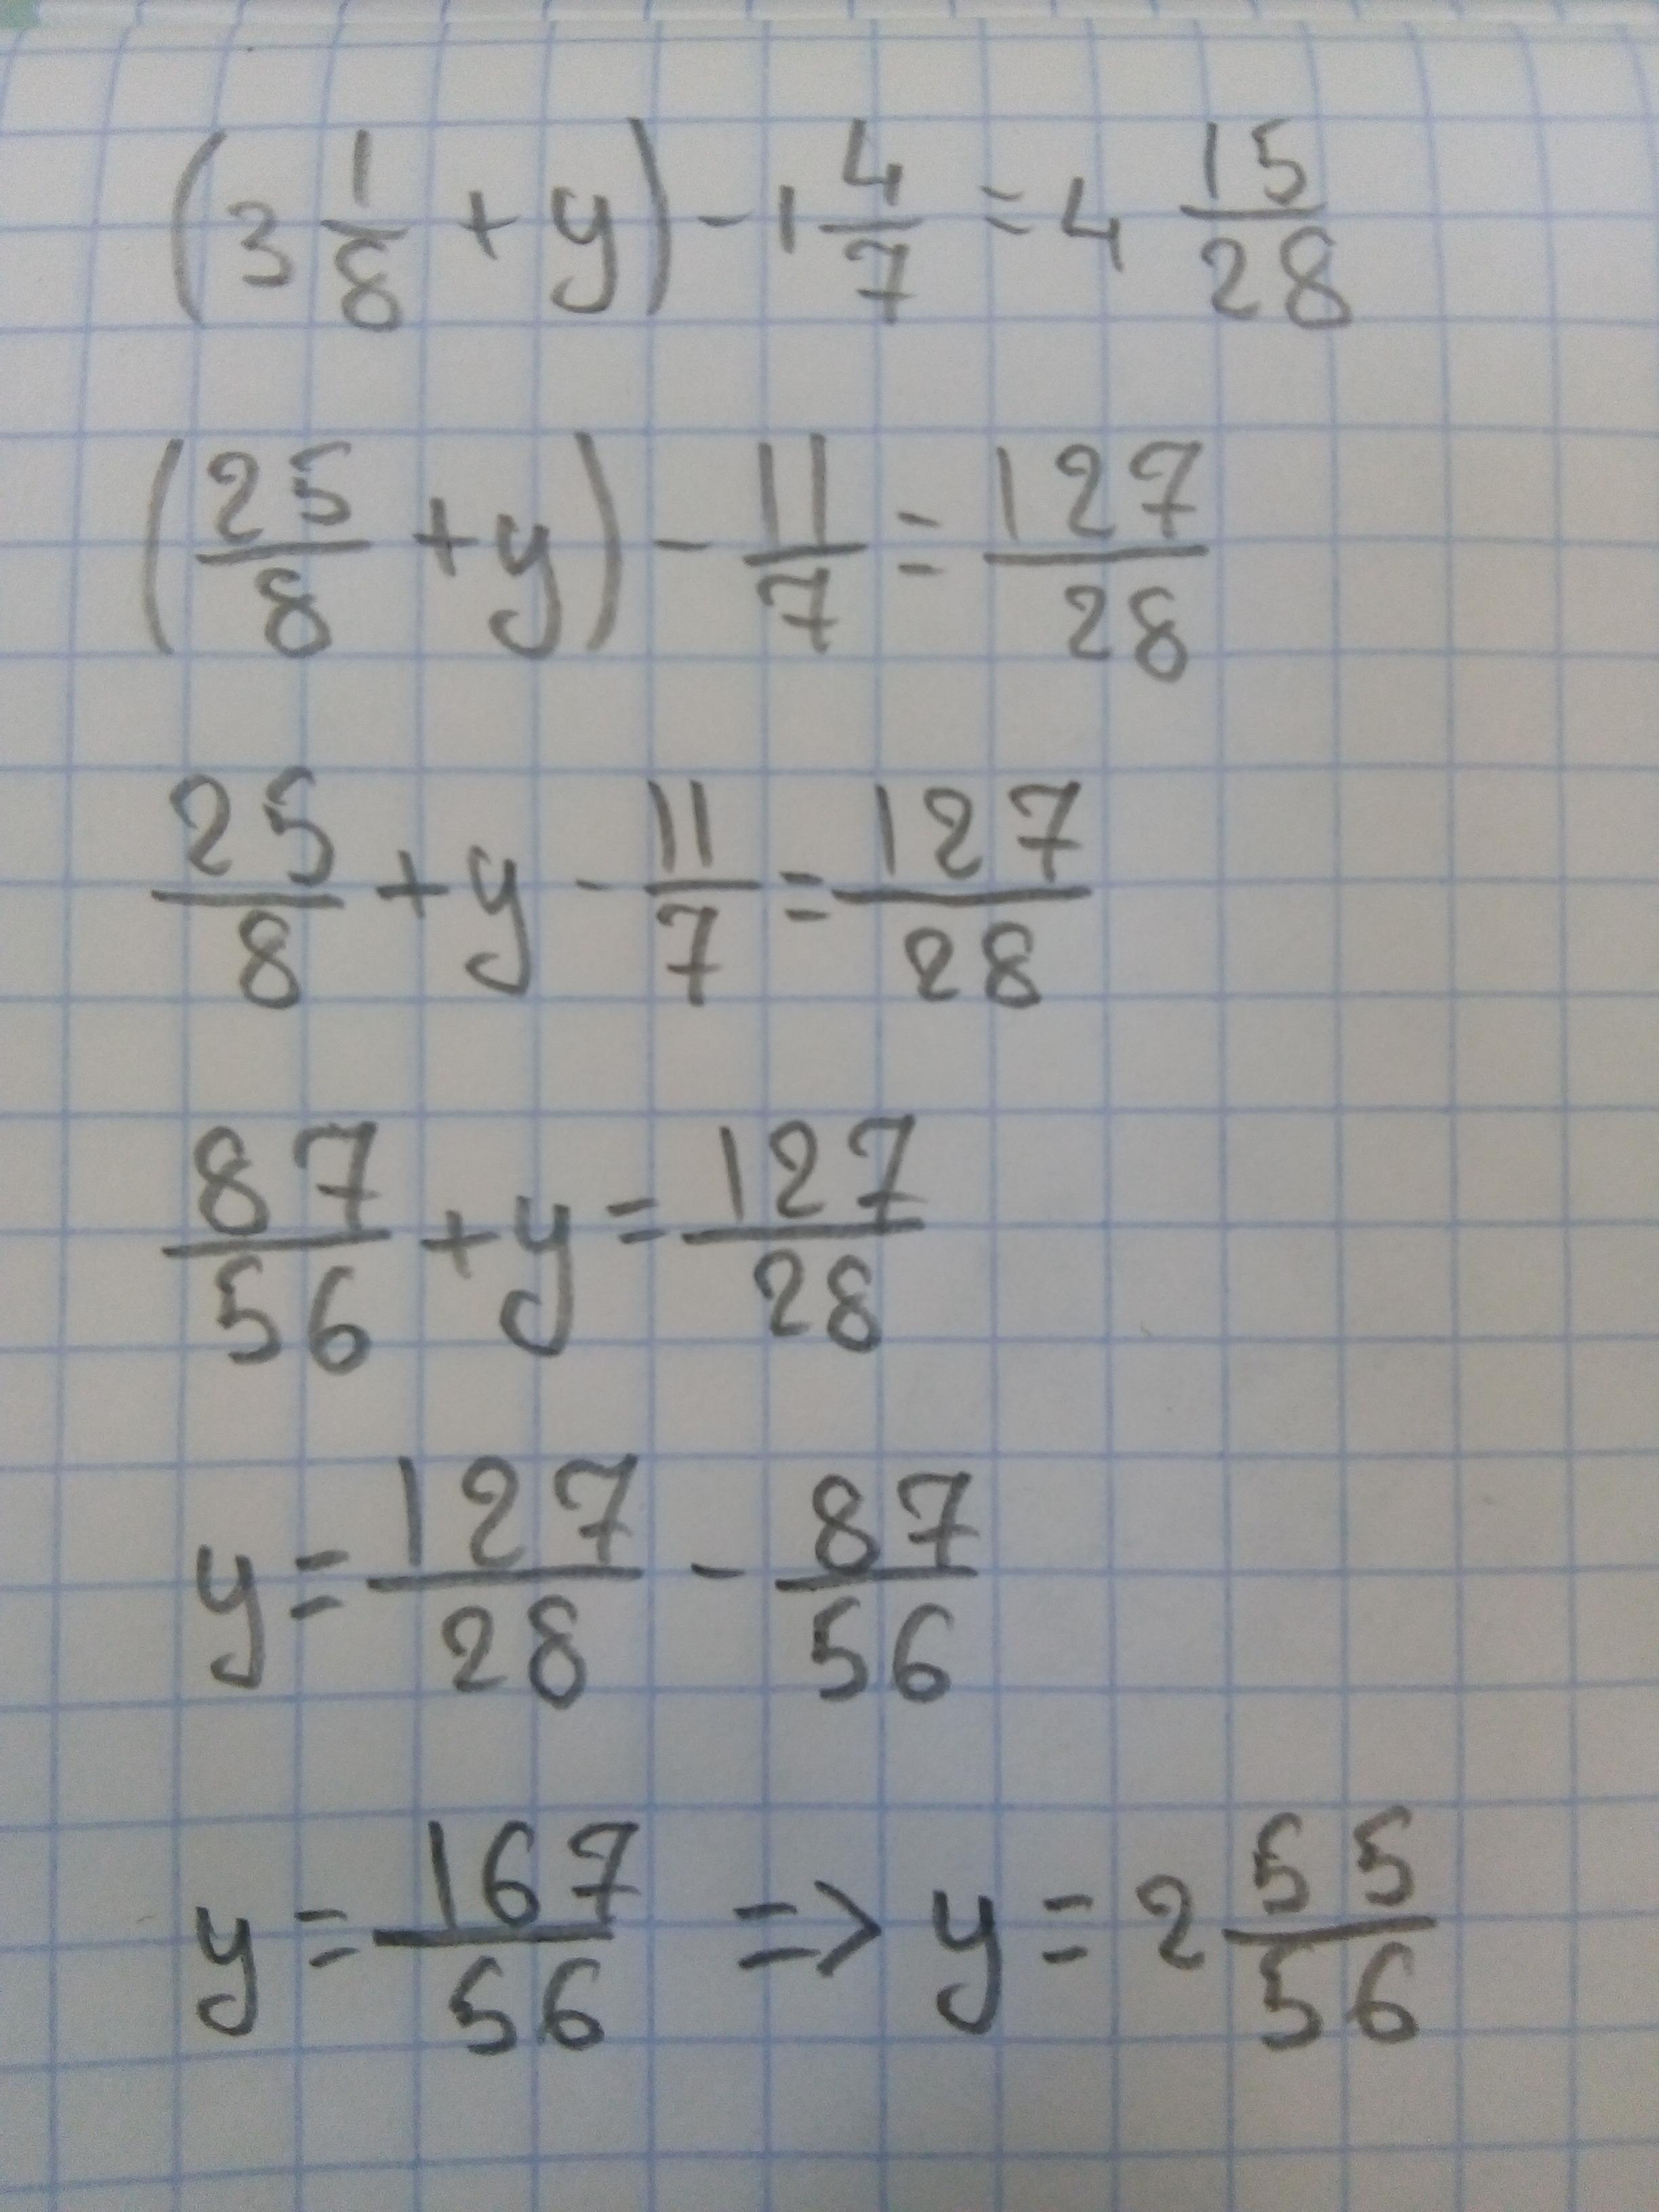 (3 1/8 + y) - 1 4/7 = 4 15/28
(25/8 + y) - 11/7 = 127/28
25/8 + y - 11/7 = 127/28
87/56 + y = 127/28
y = 127/28 - 87/56
y = 167/56 => y = 2 55/56